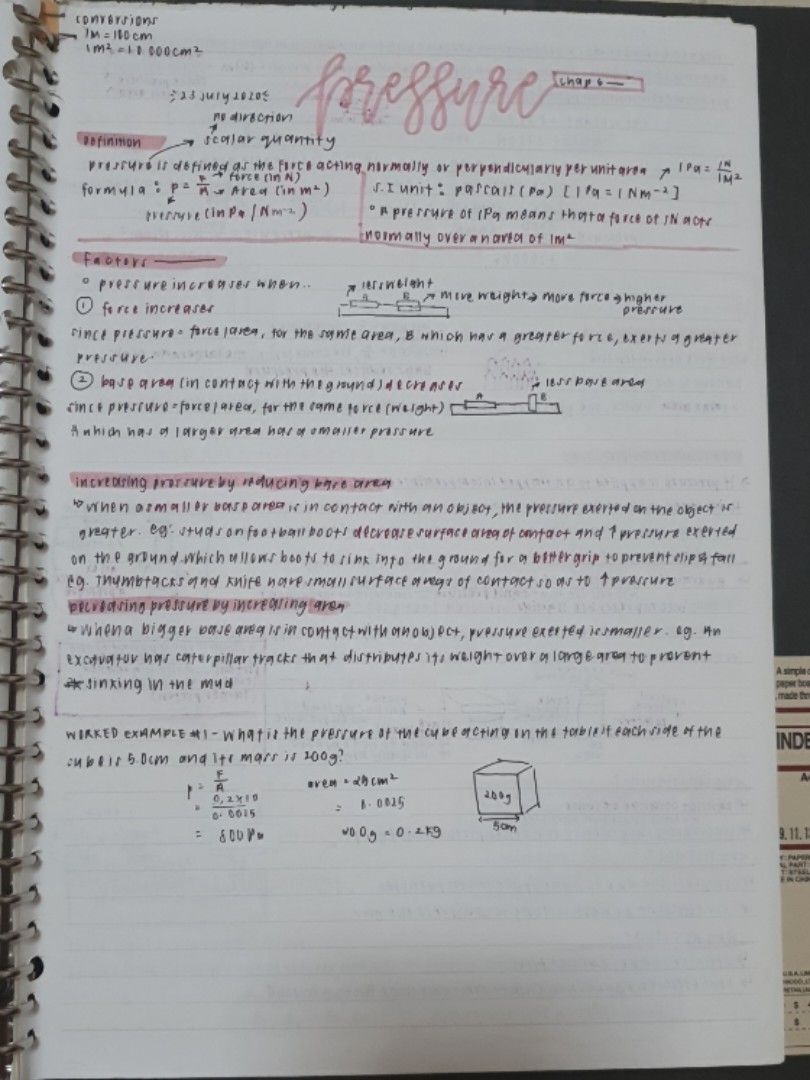 conversions
1m = 100cm
1m² = 10 000cm²
pressure
chap 6
23 July 2020
no direction
Definition
scalar quantity
pressure is defined as the force acting normally or perpendicularly per unit area → 1Pa = 1N/1M²
formula : p = F/A → force (in N)
→ Area (in m²)
pressure (in Pa / Nm⁻²)
S.I unit : pascals (Pa) [1Pa = 1Nm⁻²]
° A pressure of 1Pa means that a force of 1N acts
normally over an area of 1m²
Factors
° pressure increases when..
① force increases
→ less weight
A B → more weight → more force → higher
pressure
since pressure = force/area, for the same area, B which has a greater force, exerts a greater
pressure.
② base area (in contact with the ground) decreases
→ less base area
since pressure = force/area, for the same force (weight)
A B
A which has a larger area has a smaller pressure
increasing pressure by reducing base area
↳ When a smaller base area is in contact with an object, the pressure exerted on the object is
greater. eg: studs on football boots decrease surface area of contact and ↑ pressure exerted
on the ground which allows boots to sink into the ground for a better grip to prevent slip & fall
eg. Thumbtacks and knife have small surface areas of contact so as to ↑ pressure
Decreasing pressure by increasing area
↳ When a bigger base area is in contact with an object, pressure exerted is smaller. eg. An
excavator has caterpillar tracks that distributes its weight over a large area to prevent
sinking in the mud
WORKED EXAMPLE #1 - What is the pressure of the cube acting on the table if each side of the
cube is 5.0cm and its mass is 200g?
p = F/A
= 0.2×10/0.0025
= 800Pa
area = 25cm²
= 0.0025
200g = 0.2kg
200g
5cm
A simple
paper
made
INDE
9, 11, 1
PAPER
PART
STEEL
E IN
U.S.A.
$
$